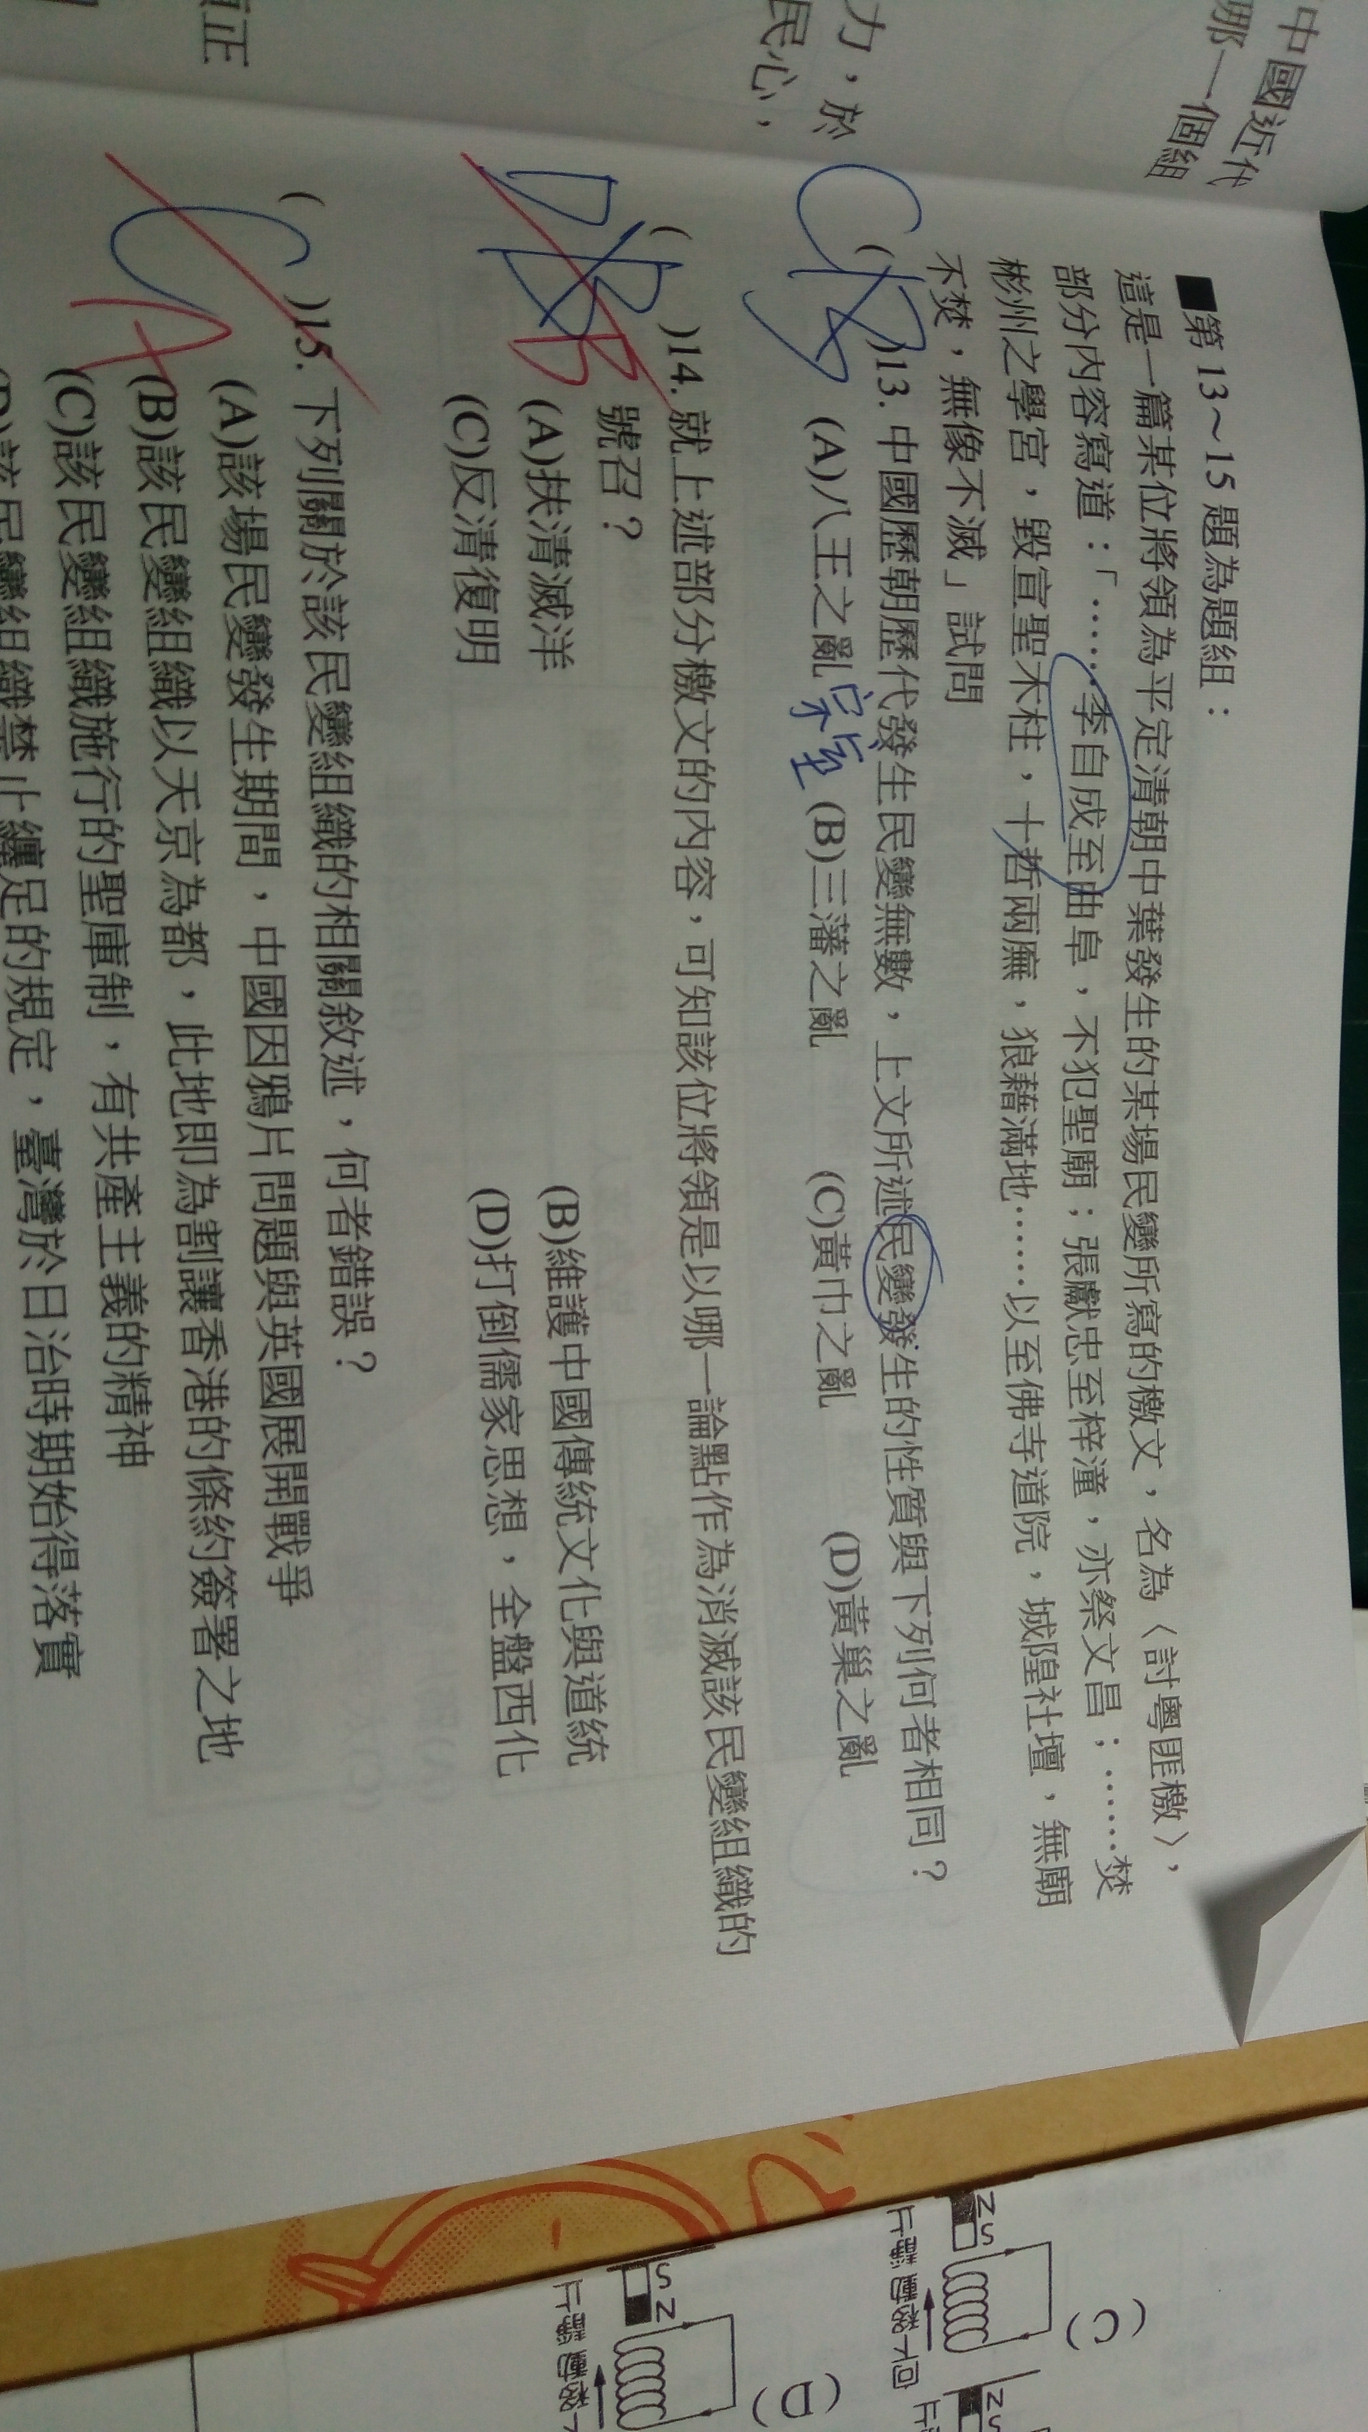 中國近代
哪一個組
力，於
民心，
正
■第 13～15 題為題組：
這是一篇某位將領為平定清朝中葉發生的某場民變所寫的檄文，名為〈討粵匪檄〉，
部分內容寫道：「……李自成至曲阜，不犯聖廟；張獻忠至梓潼，亦祭文昌；……焚
彬州之學宮，毀宣聖木柱，十哲兩廡，狼藉滿地……以至佛寺道院，城隍社壇，無廟
不焚，無像不滅」試問
( )13. 中國歷朝歷代發生民變無數，上文所述民變發生的性質與下列何者相同？
(A)八王之亂 宗室 (B)三藩之亂 (C)黃巾之亂 (D)黃巢之亂
C
( )14. 就上述部分檄文的內容，可知該位將領是以哪一論點作為消滅該民變組織的
號召？
(A)扶清滅洋 (B)維護中國傳統文化與道統
(C)反清復明 (D)打倒儒家思想，全盤西化
D B
B
( )15. 下列關於該民變組織的相關敘述，何者錯誤？
(A)該場民變發生期間，中國因鴉片問題與英國展開戰爭
(B)該民變組織以天京為都，此地即為割讓香港的條約簽署之地
(C)該民變組織施行的聖庫制，有共產主義的精神
(D)該民變組織禁止纏足的規定，臺灣於日治時期始得落實
C
A
(C)
N S
(D)
S N